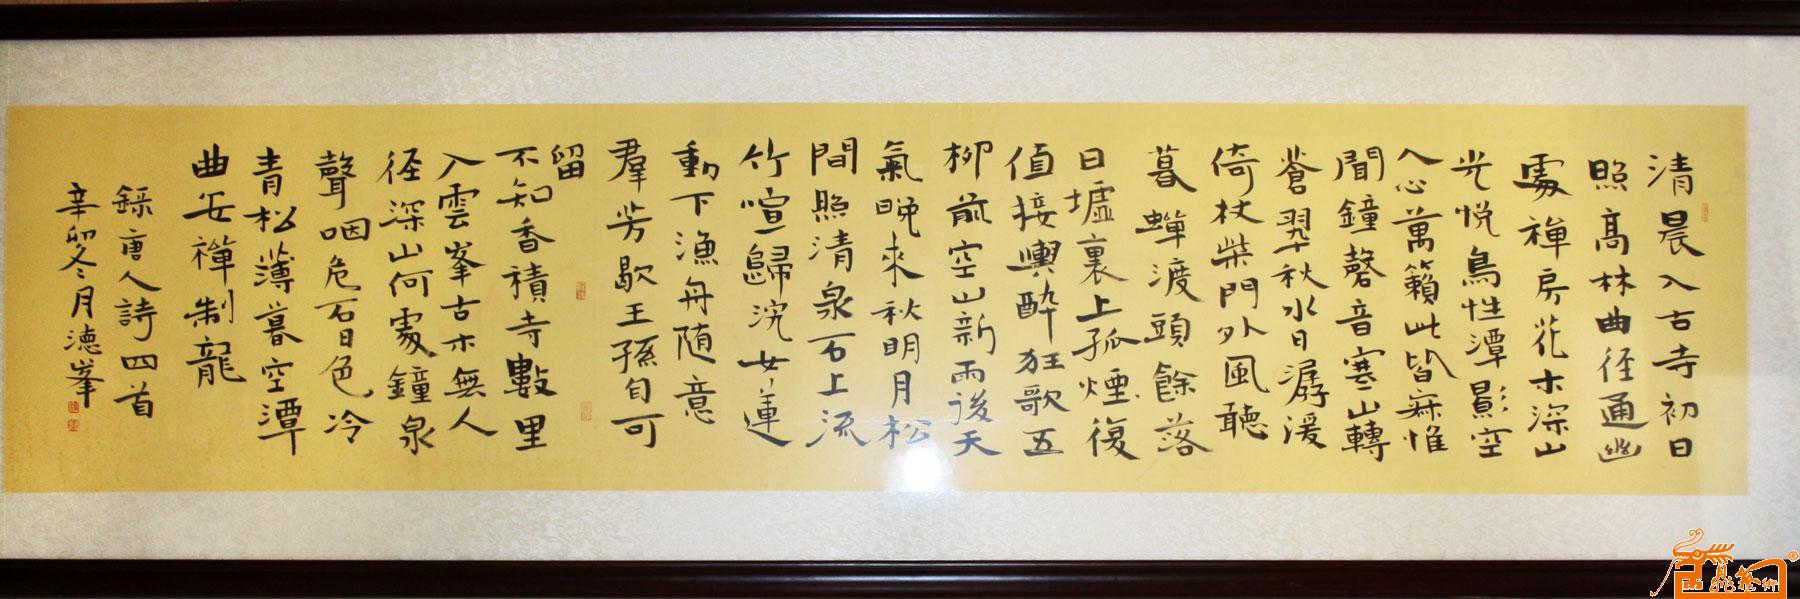 清晨入古寺初日
照高林曲径通幽
處禪房花木深山
光悦鳥性潭影空
人心萬籟此皆寂惟
聞鐘磬音寒山轉
蒼翠秋水日潺湲
倚杖柴門外風聽
暮蟬渡頭餘落
日墟裏上孤煙復
值接輿醉狂歌五
柳前空山新雨後天
氣晚來秋明月松
間照清泉石上流
竹喧歸浣女蓮
動下漁舟随意
羣芳歇王孫自可
留
不知香積寺數里
入雲峯古木無人
径深山何處鐘泉
聲咽危石日色冷
青松薄暮空潭
曲安禪制龍
録唐人詩四首
辛卯冬月德峯